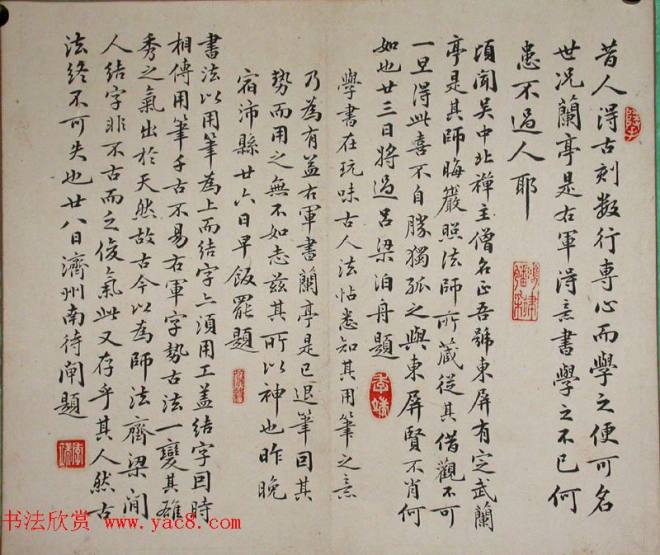 昔人得古刻數行專心而學之便可名
世況蘭亭是右軍得意書學之不已何
患不過人耶
頃聞吴中北禪主僧名正吾號東屏有定武蘭
亭是其師晦巖照法師所藏從其借觀不可
一旦得此喜不自勝獨孤之與東屏賢不肖何
如也廿三日將過呂梁泊舟題
學書在玩味古人法帖悉知其用筆之意
乃為有益右軍書蘭亭是已退筆因其
勢而用之無不如志兹其所以神也昨晚
宿沛縣廿六日早飯罷題
書法以用筆為上而結字上須用工盖結字因時
相傳用筆千古不易右軍字勢古法一變其雄
秀之氣出於天然故古今以為師法齊梁間
人結字非不古而乏俊氣此又存乎其人然古
法終不可失也廿八日濟州南待閘題
书法欣赏 www.yac8.com